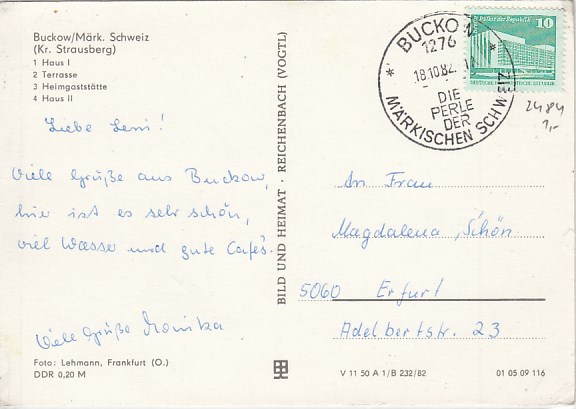 Buckow/Märk. Schweiz
(Kr. Strausberg)
1 Haus I
2 Terrasse
3 Heimgaststätte
4 Haus II
Liebe Leni!
Viele Grüße aus Buckow,
hier ist es sehr schön,
viel Wasser und gute Cafés.
Viele Grüße Monika
Foto: Lehmann, Frankfurt (O.)
DDR 0,20 M
BILD UND HEIMAT · REICHENBACH (VOGTL)
BUCKOW
1276
18.10.82
DIE
PERLE
DER
MÄRKISCHEN SCHWEIZ
Palast der Republik 10
2484
1,-
An Frau
Magdalena Schön
5060 Erfurt
Adelbertstr. 23
V 11 50 A 1/B 232/82
01 05 09 116